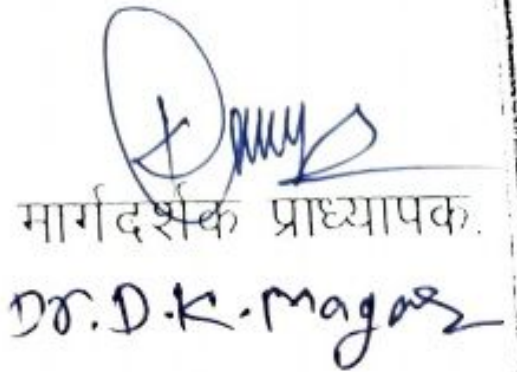 मार्गदर्शक प्राध्यापक.
Dr. D. K. Magar